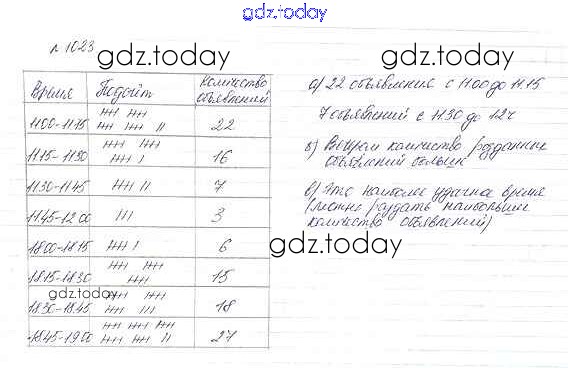 gdz.today
№ 1023
gdz.today
Время Подсчёт Количество объявлений
11.00-11.15 22
11.15-11.30 16
11.30-11.45 7
11.45-12.00 3
18.00-18.15 6
18.15-18.30 15
gdz.today
18.30-18.45 18
18.45-19.00 27
gdz.today
а) 22 объявления с 11.00 до 11.15
7 объявлений с 11.30 до
б) количество розданных
объявлений больше
в) Это наиболее удачное время
раздать наибольшее
количество объявлений)
gdz.today